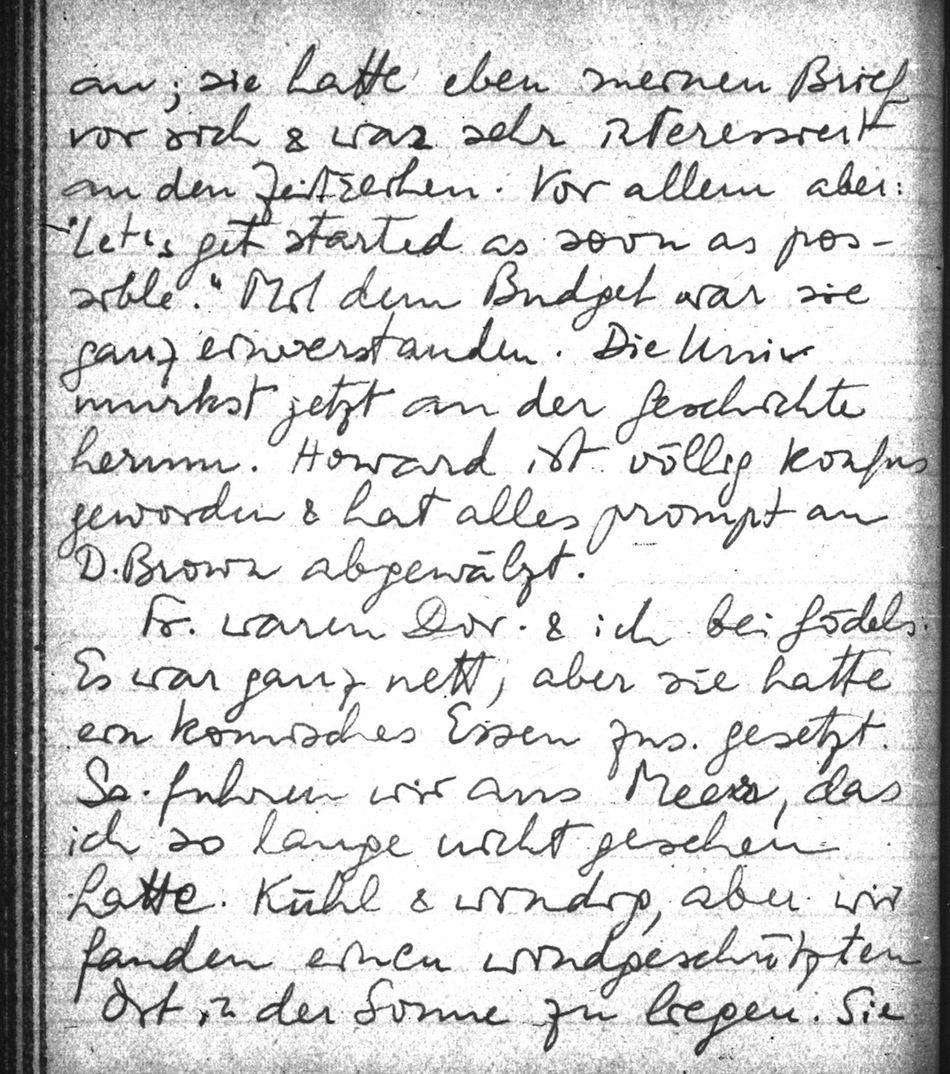 an; sie hatte eben meinen Brief
vor sich & war sehr interessiert
an den Zeitreihen. Vor allem aber:
"Let's get started as soon as pos-
sible." Mit dem Budget war sie
ganz einverstanden. Die Univ
murkst jetzt an der Geschichte
herum. Howard ist völlig konfus
geworden & hat alles prompt an
D. Brown abgewälzt.
Fr. waren Dor. & ich bei Gödels.
Es war ganz nett, aber sie hatte
ein komisches Essen zus. gesetzt.
Sa. fuhren wir ans Meer, das
ich so lange nicht gesehen
hatte. Kühl & windig, aber wir
fanden einen windgeschützten
Ort in der Sonne zu liegen. Sie